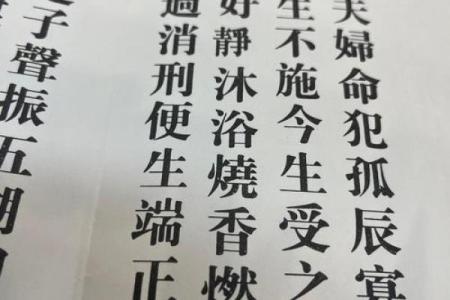 夫婦命犯孤辰寡
生不施今生受之
好靜沐浴燒香燃
過消刑便生端正
子聲振五湖